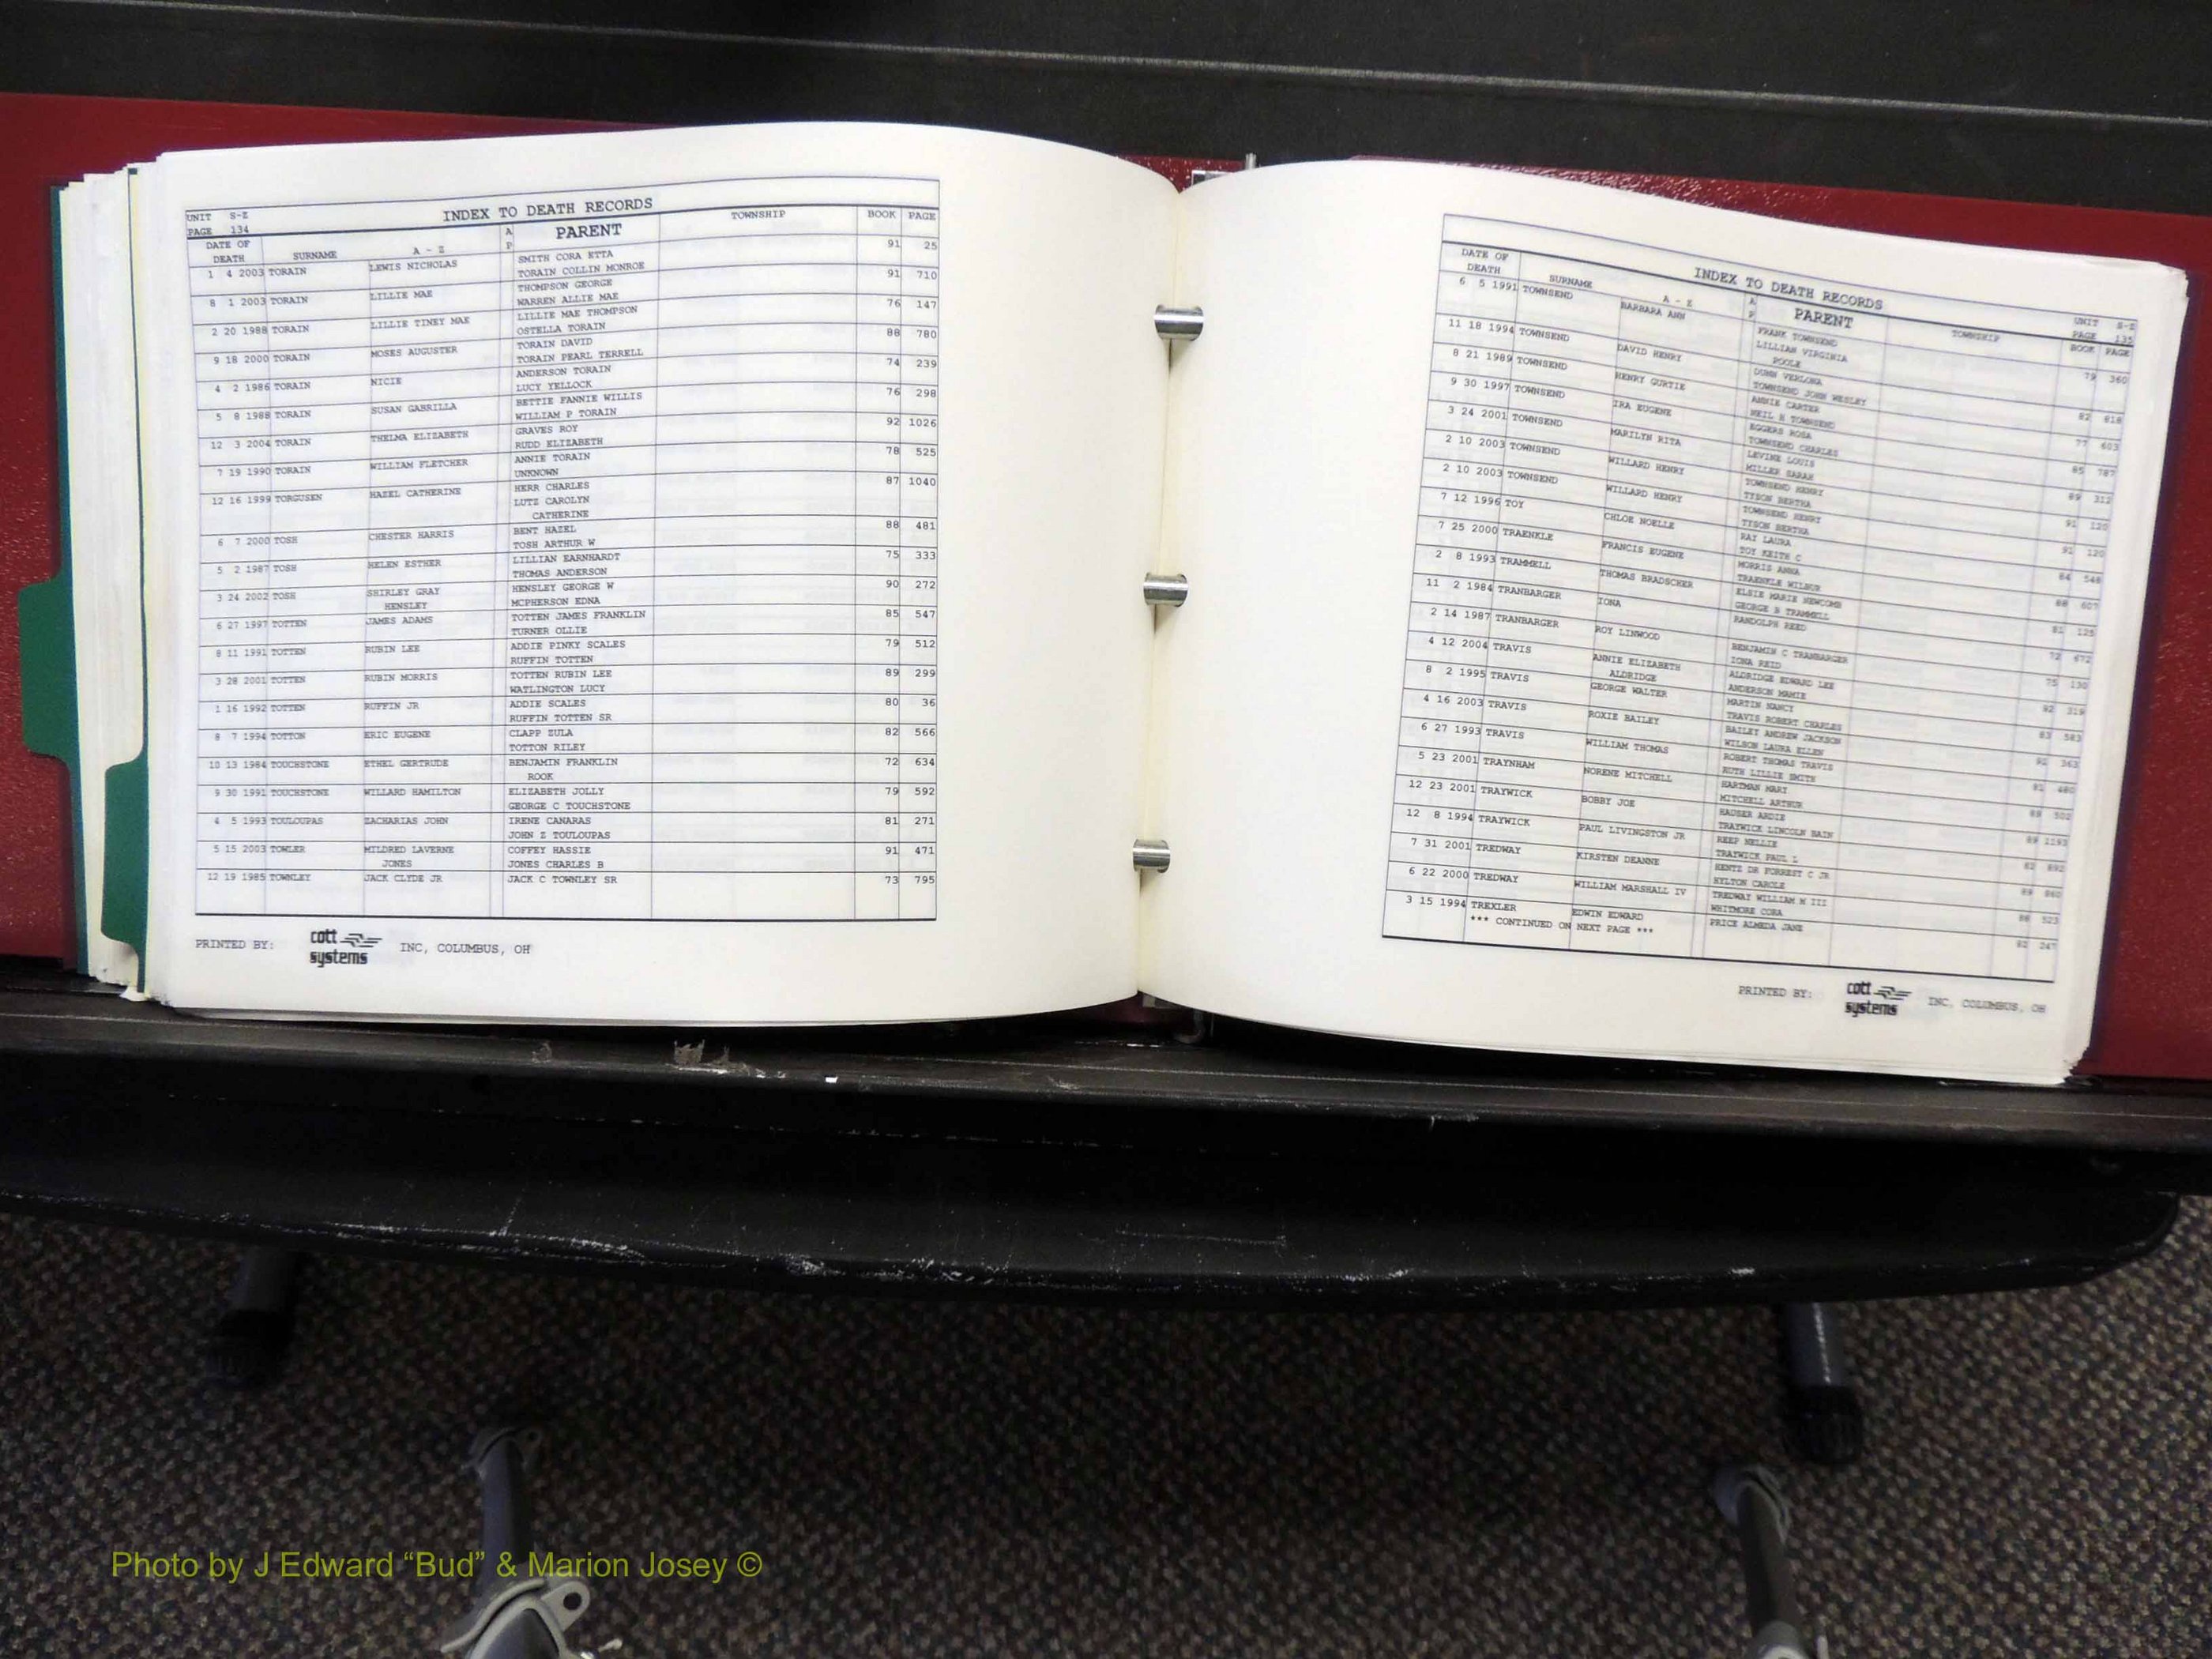 UNIT S-Z
PAGE 134
INDEX TO DEATH RECORDS
DATE OF DEATH SURNAME A - Z A P PARENT TOWNSHIP BOOK PAGE
1 4 2003 TORAIN LEWIS NICHOLAS SMITH CORA ETTA 91 25
TORAIN COLLIN MONROE
8 1 2003 TORAIN LILLIE MAE THOMPSON GEORGE 91 710
WARREN ALLIE MAE
2 20 1988 TORAIN LILLIE TINEY MAE LILLIE MAE THOMPSON 76 147
OSTELLA TORAIN
9 18 2000 TORAIN MOSES AUGUSTER TORAIN DAVID 88 780
TORAIN PEARL TERRELL
4 2 1986 TORAIN NICIE ANDERSON TORAIN 74 239
LUCY YELLOCK
5 8 1988 TORAIN SUSAN GABRILLA BETTIE FANNIE WILLIS 76 298
WILLIAM P TORAIN
12 3 2004 TORAIN THELMA ELIZABETH GRAVES ROY 92 1026
RUDD ELIZABETH
7 19 1990 TORAIN WILLIAM FLETCHER ANNIE TORAIN 78 525
UNKNOWN
12 16 1999 TORGUSEN HAZEL CATHERINE HERR CHARLES 87 1040
LUTZ CAROLYN
CATHERINE
6 7 2000 TOSH CHESTER HARRIS BENT HAZEL 88 481
TOSH ARTHUR W
5 2 1987 TOSH HELEN ESTHER LILLIAN EARNHARDT 75 333
THOMAS ANDERSON
3 24 2002 TOSH SHIRLEY GRAY HENSLEY GEORGE W 90 272
HENSLEY MCPHERSON EDNA
6 27 1997 TOTTEN JAMES ADAMS TOTTEN JAMES FRANKLIN 85 547
TURNER OLLIE
8 11 1991 TOTTEN RUBIN LEE ADDIE PINKY SCALES 79 512
RUFFIN TOTTEN
3 28 2001 TOTTEN RUBIN MORRIS TOTTEN RUBIN LEE 89 299
WATLINGTON LUCY
1 16 1992 TOTTEN RUFFIN JR ADDIE SCALES 80 36
RUFFIN TOTTEN SR
8 7 1994 TOTTON ERIC EUGENE CLAPP ZULA 82 566
TOTTON RILEY
10 13 1984 TOUCHSTONE ETHEL GERTRUDE BENJAMIN FRANKLIN 72 634
ROOK
9 30 1991 TOUCHSTONE WILLARD HAMILTON ELIZABETH JOLLY 79 592
GEORGE C TOUCHSTONE
4 5 1993 TOULOUPAS ZACHARIAS JOHN IRENE CANARAS 81 271
JOHN Z TOULOUPAS
5 15 2003 TOWLER MILDRED LAVERNE COFFEY HASSIE 91 471
JONES JONES CHARLES B
12 19 1985 TOWNLEY JACK CLYDE JR JACK C TOWNLEY SR 73 795
PRINTED BY: cott systems INC, COLUMBUS, OH
INDEX TO DEATH RECORDS
UNIT S-Z
PAGE 135
DATE OF DEATH SURNAME A - Z A P PARENT TOWNSHIP BOOK PAGE
6 5 1991 TOWNSEND BARBARA ANN FRANK TOWNSEND 79 360
LILLIAN VIRGINIA
POOLE
11 18 1994 TOWNSEND DAVID HENRY DUNN VERLONA 82 818
TOWNSEND JOHN WESLEY
8 21 1989 TOWNSEND HENRY GURTIE ANNIE CARTER 77 603
NEIL H TOWNSEND
9 30 1997 TOWNSEND IRA EUGENE EGGERS ROSA 85 787
TOWNSEND CHARLES
3 24 2001 TOWNSEND MARILYN RITA LEVINE LOUIS 89 312
MILLER SARAH
2 10 2003 TOWNSEND WILLARD HENRY TOWNSEND HENRY 91 120
TYSON BERTHA
2 10 2003 TOWNSEND WILLARD HENRY TOWNSEND HENRY 91 120
TYSON BERTHA
7 12 1996 TOY CHLOE NOELLE RAY LAURA 84 548
TOY KEITH C
7 25 2000 TRAENKLE FRANCIS EUGENE MORRIS ANNA 88 607
TRAENKLE WILBUR
2 8 1993 TRAMMELL THOMAS BRADSCHER ELSIE MARIE NEWCOMB 81 125
GEORGE B TRAMMELL
11 2 1984 TRANBARGER IONA RANDOLPH REED 72 672
2 14 1987 TRANBARGER ROY LINWOOD BENJAMIN C TRANBARGER 75 130
IONA REID
4 12 2004 TRAVIS ANNIE ELIZABETH ALDRIDGE EDWARD LEE 92 319
ALDRIDGE ANDERSON MAMIE
8 2 1995 TRAVIS GEORGE WALTER MARTIN NANCY 83 583
TRAVIS ROBERT CHARLES
4 16 2003 TRAVIS ROXIE BAILEY BAILEY ANDREW JACKSON 91 363
WILSON LAURA ELLEN
6 27 1993 TRAVIS WILLIAM THOMAS ROBERT THOMAS TRAVIS 81 480
RUTH LILLIE SMITH
5 23 2001 TRAYNHAM NORENE MITCHELL HARTMAN MARY 89 502
MITCHELL ARTHUR
12 23 2001 TRAYWICK BOBBY JOE HAUSER ARDIE 89 1193
TRAYWICK LINCOLN BAIN
12 8 1994 TRAYWICK PAUL LIVINGSTON JR REEP NELLIE 82 892
TRAYWICK PAUL L
7 31 2001 TREDWAY KIRSTEN DEANNE HENTZ DR FORREST C JR 89 860
HYLTON CAROLE
6 22 2000 TREDWAY WILLIAM MARSHALL IV TREDWAY WILLIAM M III 88 523
WHITMORE CORA
3 15 1994 TREXLER EDWIN EDWARD PRICE ALMEDA JANE 82 247
*** CONTINUED ON NEXT PAGE ***
PRINTED BY: cott systems INC, COLUMBUS, OH
Photo by J Edward “Bud” & Marion Josey ©